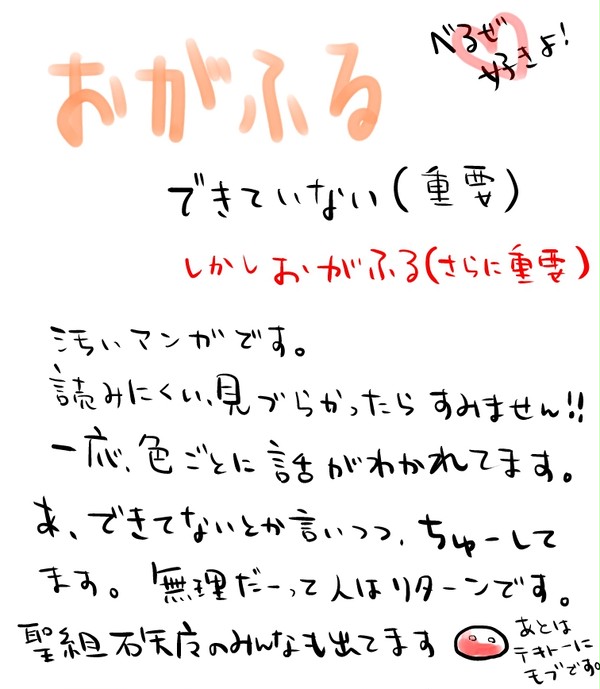 べるぜ
好きよ!
おがふる
できていない(重要)
しかしおがふる(さらに重要)
汚いマンガです。
読みにくい、見づらかったらすみません!!
一応、色ごとに話がわかれてます。
あ、できてないとか言いつつ、ちゅーして
ます。無理だーって人はリターンです。
聖組石矢庄のみんなも出てます
あとは
テキトーに
モブです。